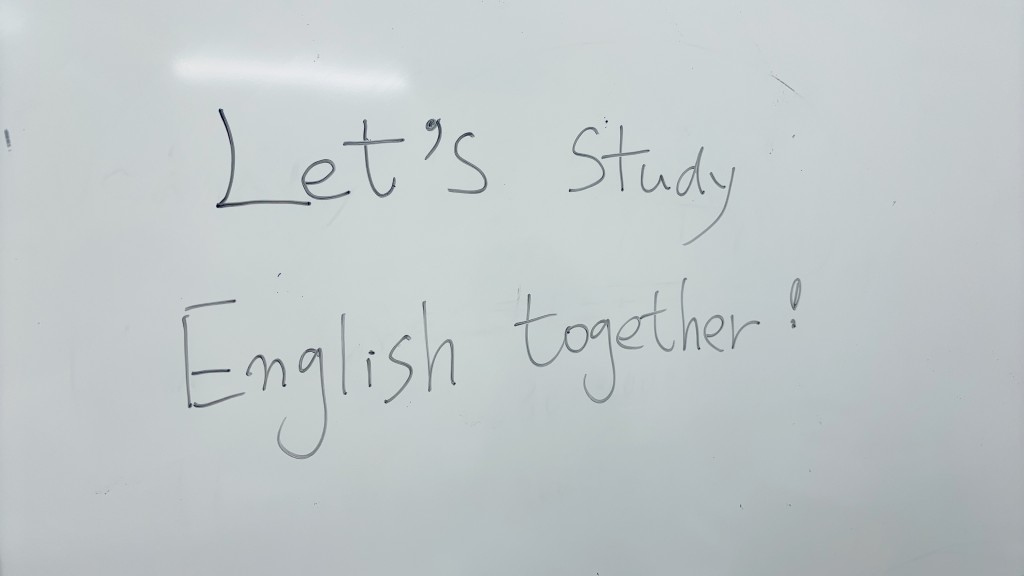 Let's Study
English together!